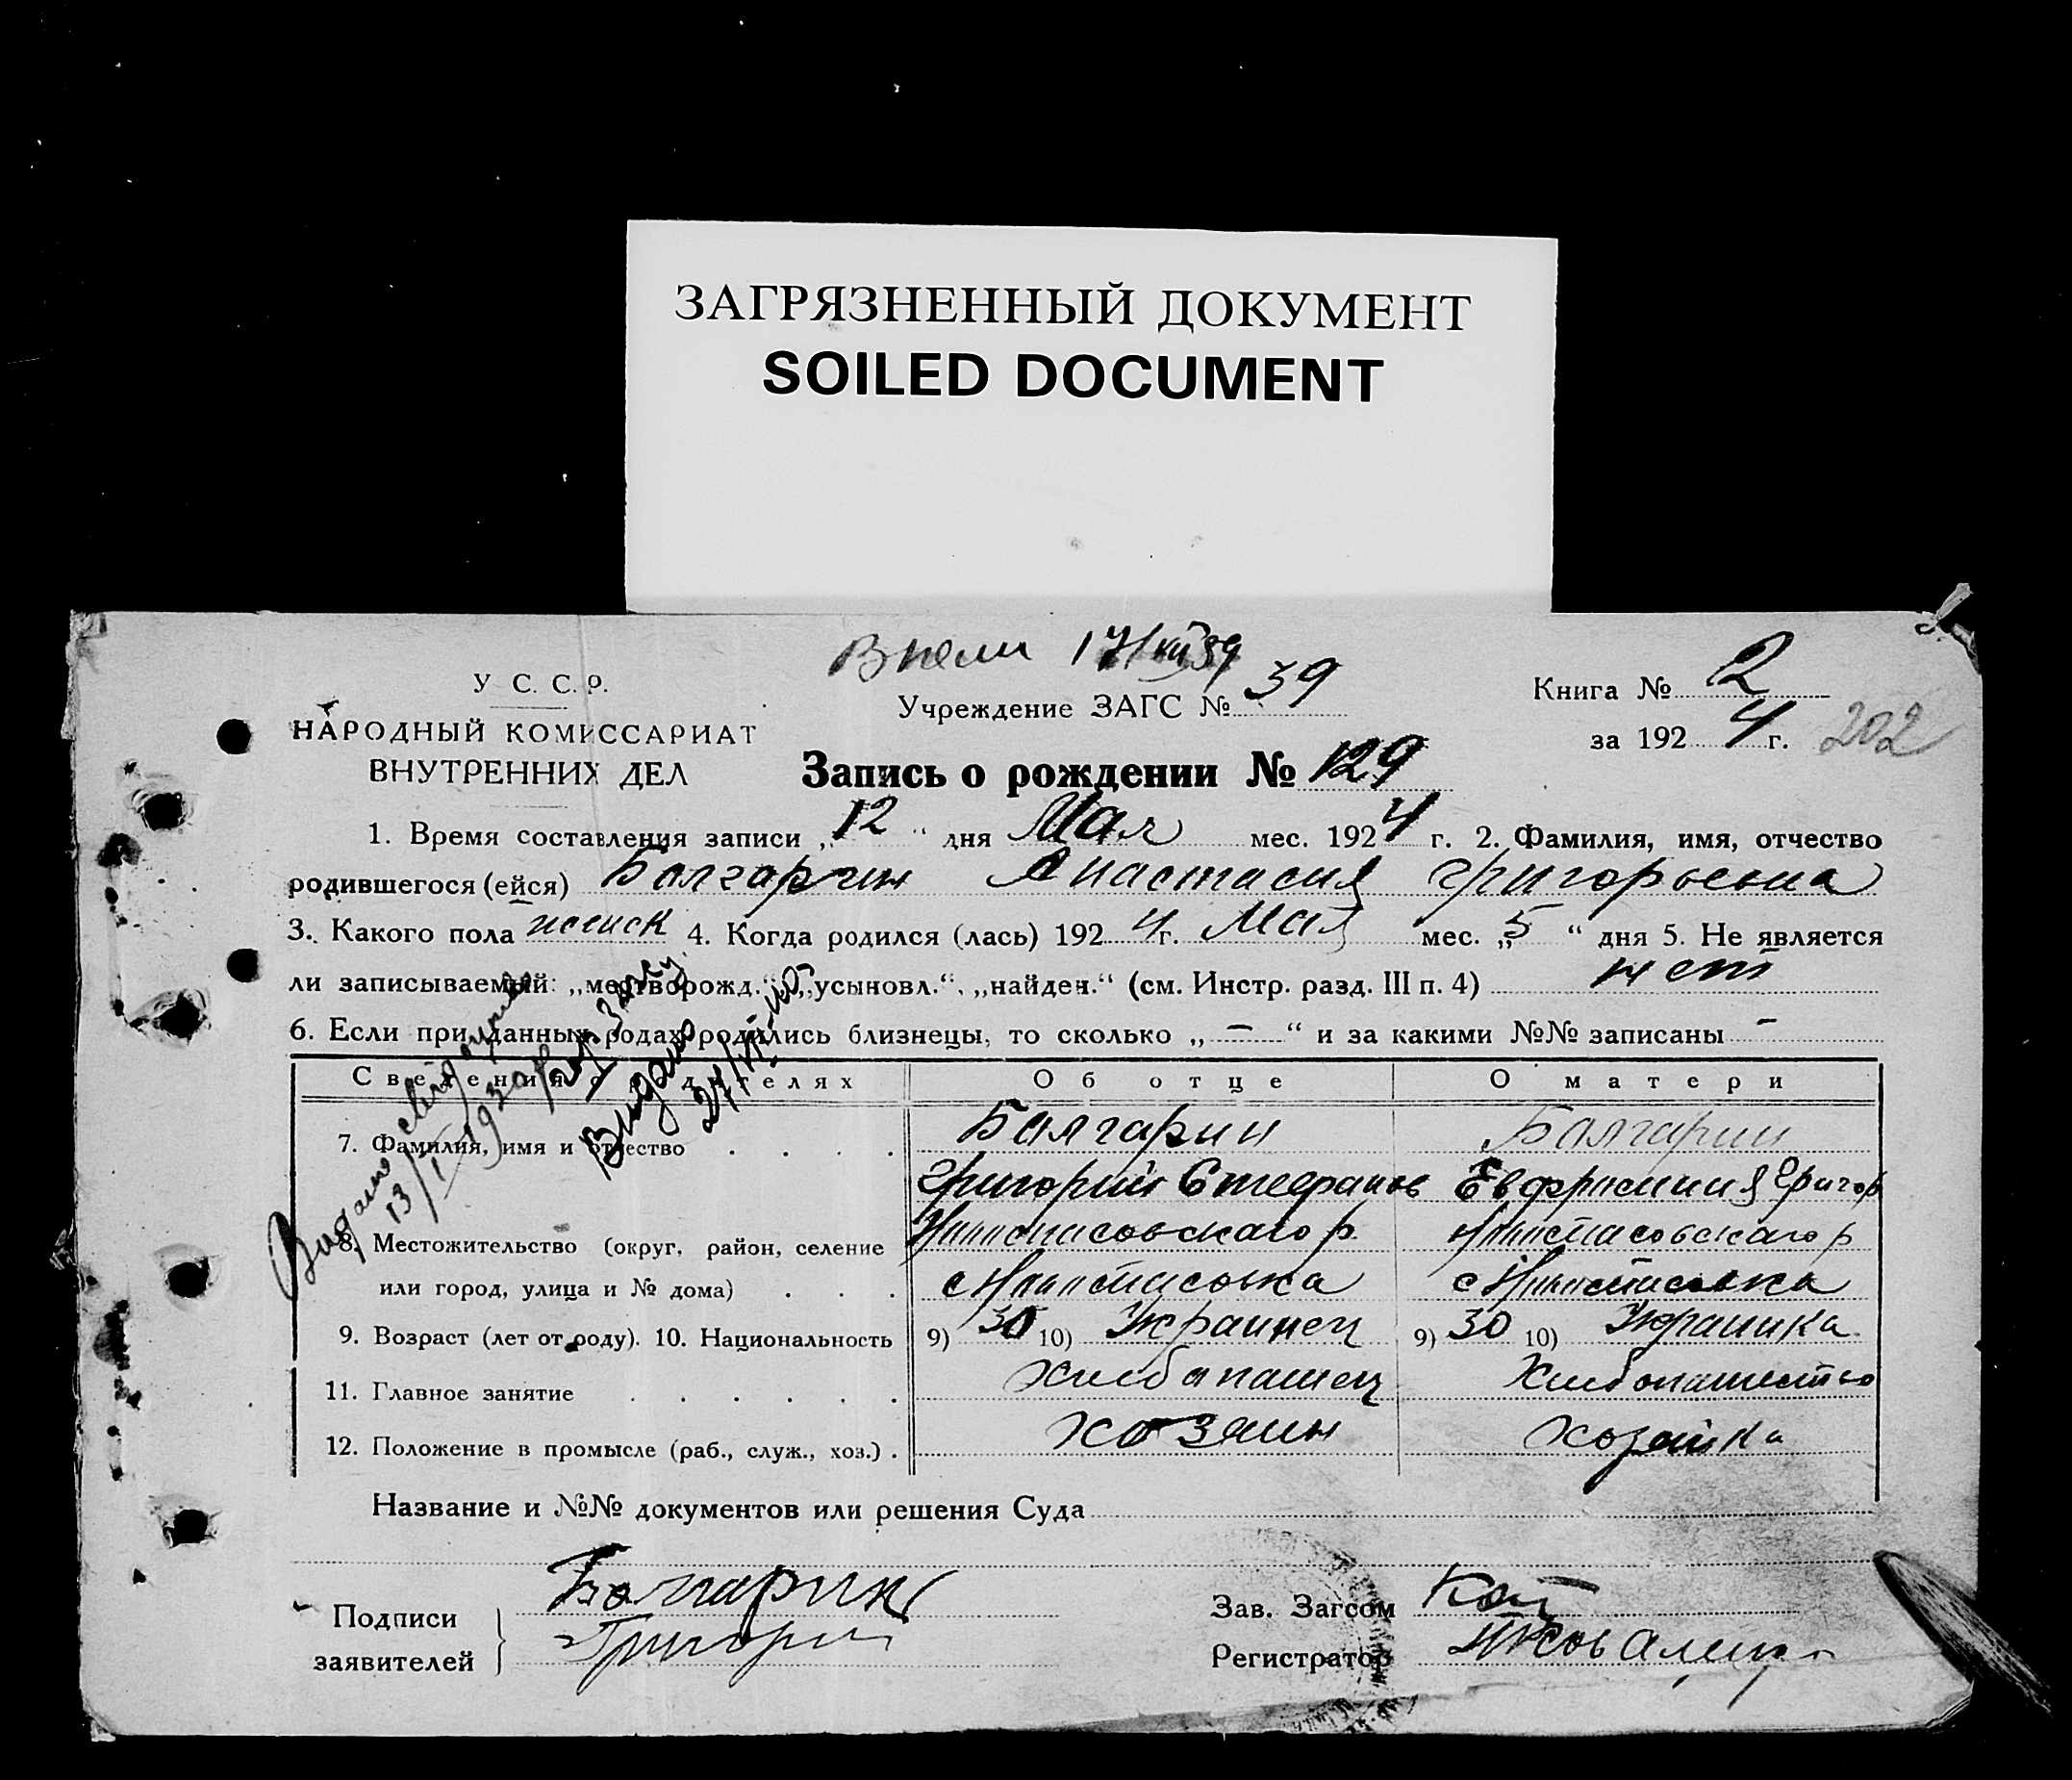 ЗАГРЯЗНЕННЫЙ ДОКУМЕНТ
SOILED DOCUMENT
У С. С. Р.
НАРОДНЫЙ КОМИССАРИАТ
ВНУТРЕННИХ ДЕЛ
Учреждение ЗАГС № 39
Книга № 2
за 1924 г. 202
Запись о рождении № 129
1. Время составления записи „12“ дня Мая мес. 1924 г. 2. Фамилия, имя, отчество
родившегося (ейся) Болгарин Анастасия Григорьевна
3. Какого пола женск 4. Когда родился (лась) 1924 г. Мая мес. „5“ дня 5. Не является
ли записываемый: „мертворожд.“, „усыновл.“, „найден.“ (см. Инстр. разд. III п. 4) нет
6. Если при данных родах родились близнецы, то сколько „—“ и за какими №№ записаны —
Сведения о родителях Об отце О матери
7. Фамилия, имя и отчество Болгарин Болгарин
Григорий Стефанов Евфросиния Григор
8. Местожительство (округ, район, селение
или город, улица и № дома)
9. Возраст (лет от роду). 10. Национальность 9) 30 10) Украинец 9) 30 10) Украинка
11. Главное занятие Хлебопашец Хлебопашество
12. Положение в промысле (раб., служ., хоз.) хозяин хозяйка
Название и №№ документов или решения Суда
Подписи заявителей Болгарин
Григорий
Зав. Загсом
Регистратор
Видано
27/VI